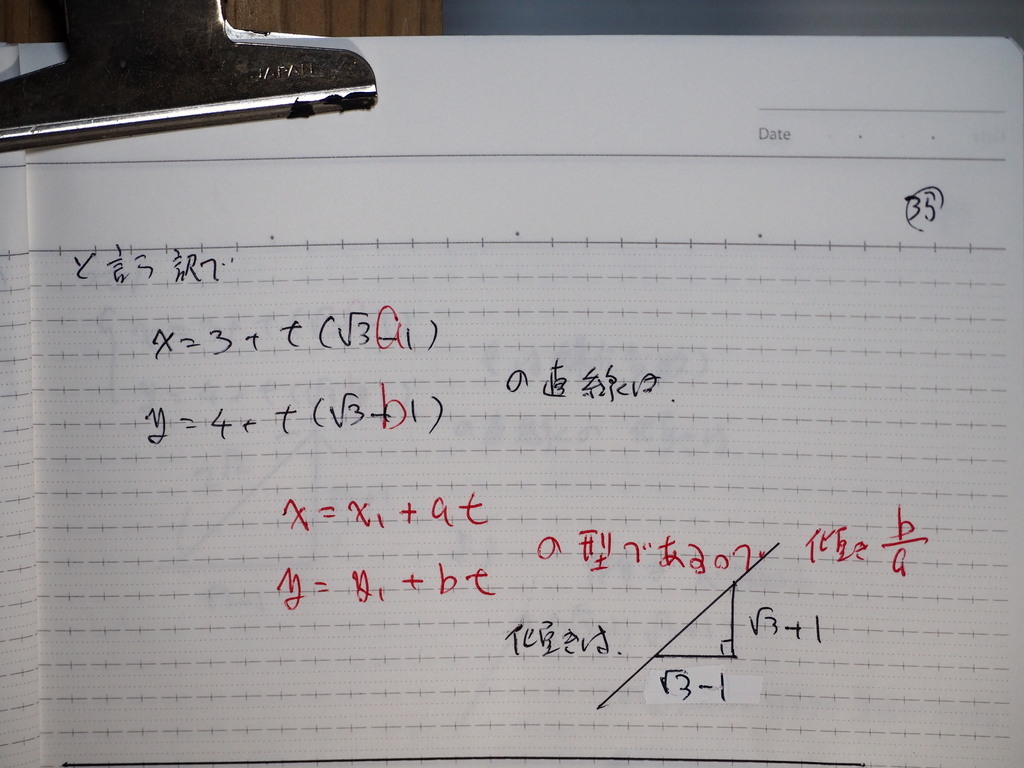 JAPAN
Date
35
と言う訳で
x = 3 + t (√3 - 1)
a
の直線は.
y = 4 + t (√3 + 1)
b
x = x₁ + at
の型であるので 傾き b/a
y = y₁ + bt
傾きは.
√3 + 1
√3 - 1